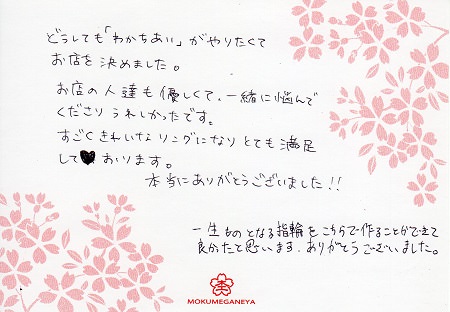 どうしても「わかちあい」がやりたくて
お店を決めました。
お店の人達も優しくて、一緒に悩んで
くださりうれしかったです。
すごくきれいなリングになりとても満足
して♥おります。
本当にありがとうございました!!
一生ものとなる指輪をこちらで作ることができて
良かったと思います。ありがとうございました。
MOKUMEGANEYA